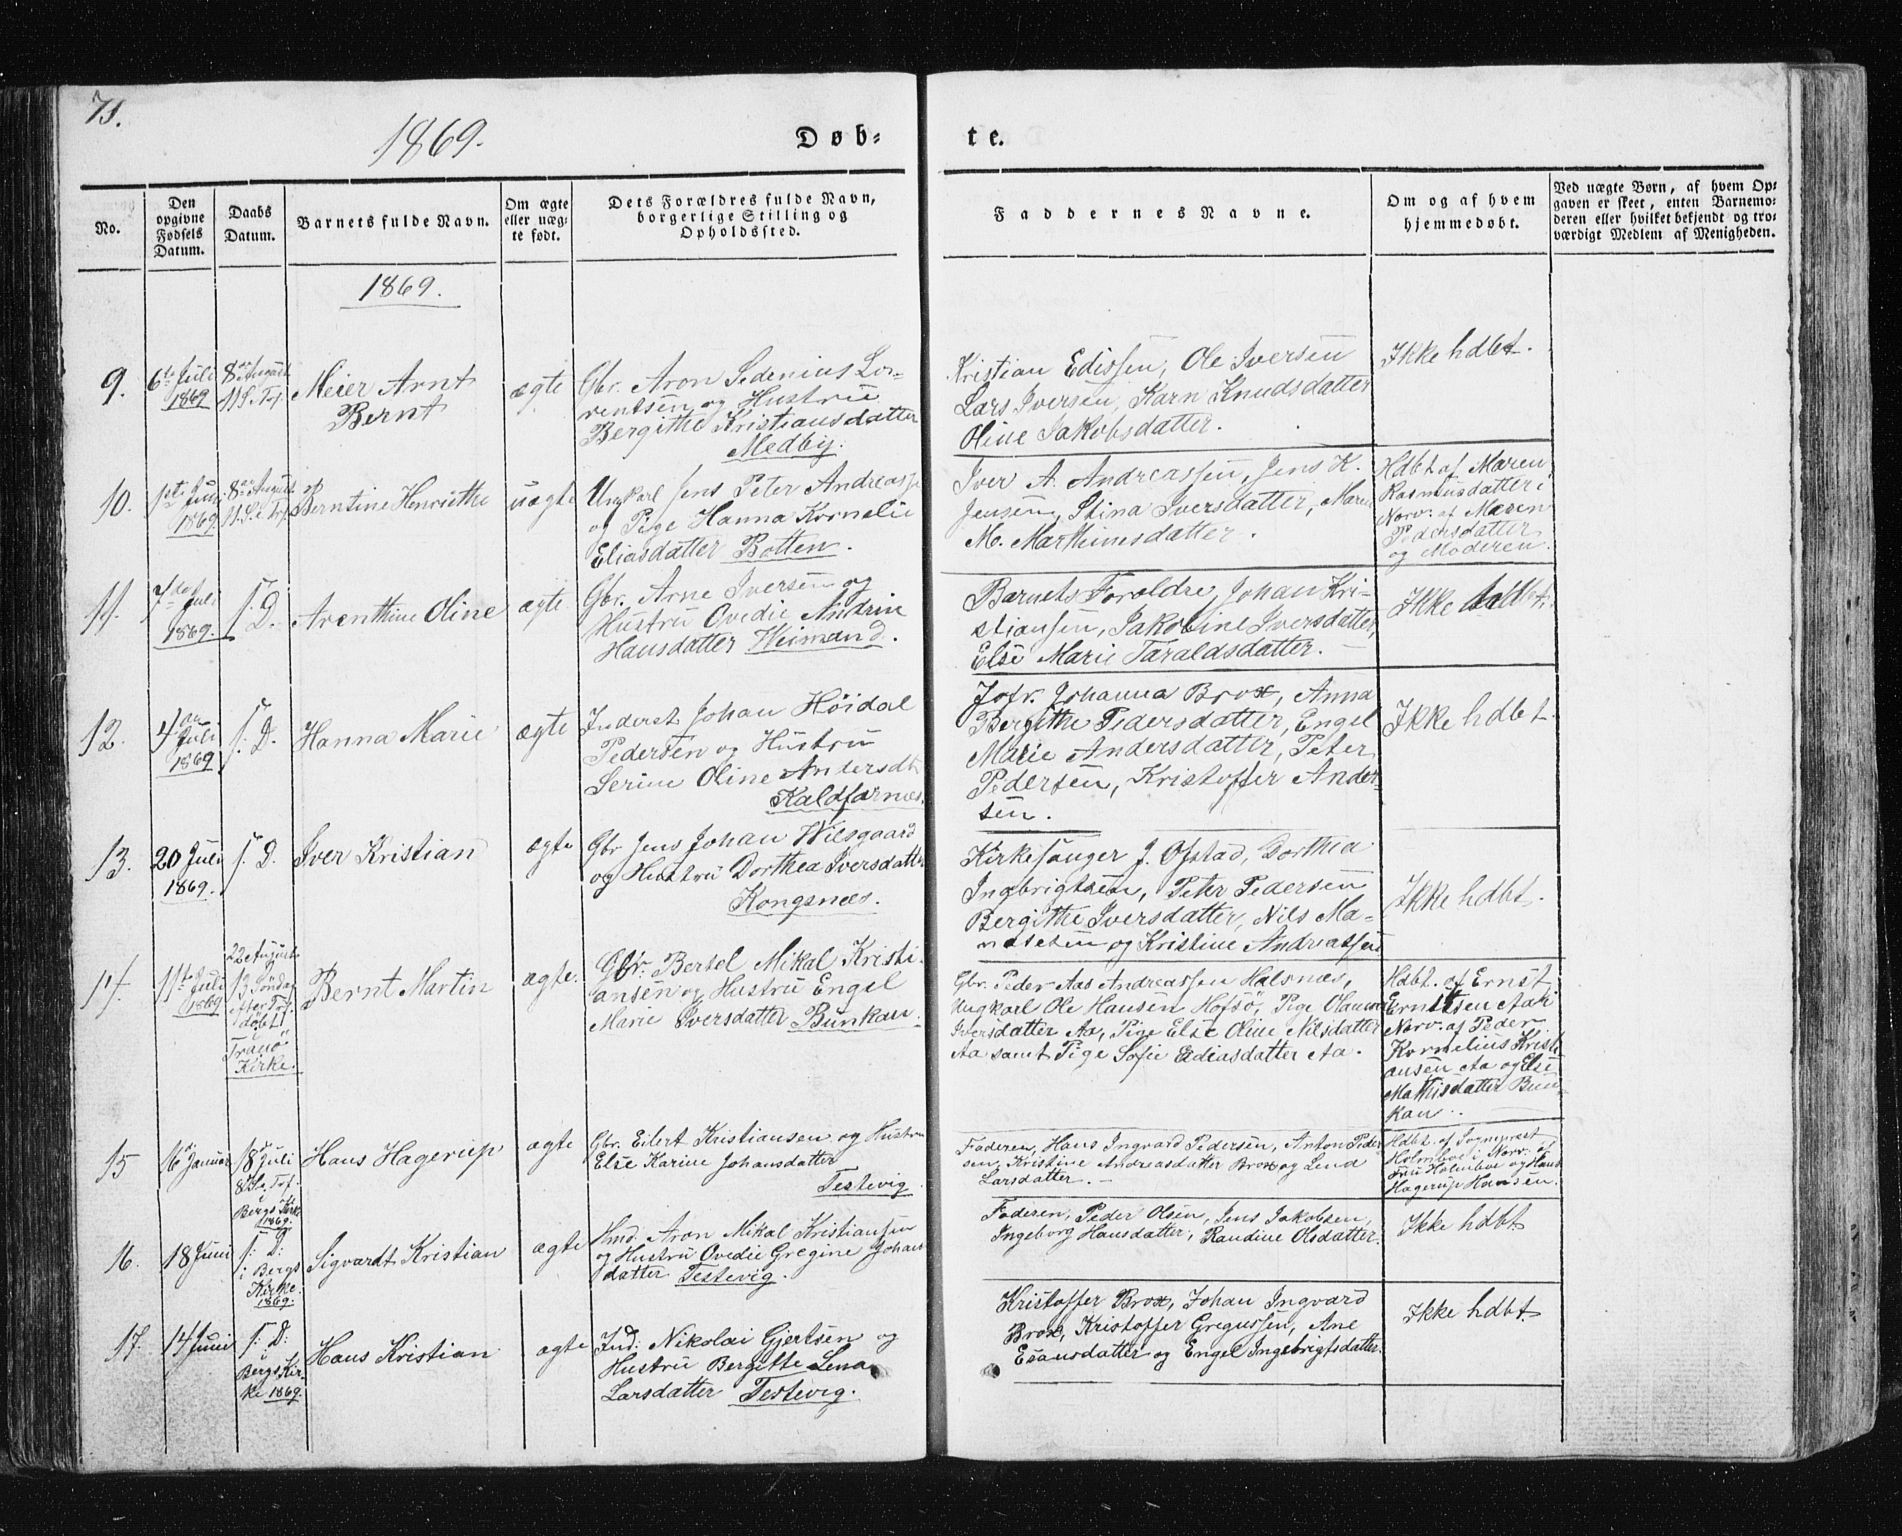 71.
1869.
Døb-
te.
No.
Den
opgivne
Fødsels
Datum.
Daabs
Datum.
Barnets fulde Navn.
Om ægte
eller uæg-
te født.
Dets Forældres fulde Navn,
borgerlige Stilling og
Opholdssted.
Faddernes Navne.
Om og af hvem
hjemmedøbt.
Ved uægte Børn, af hvem Op-
gaven er skeet, enten Barnemo-
deren eller hvilket bekjendt og tro-
værdigt Medlem af Menigheden.
1869.
9.
6te Juli
1869
8de August
11 S. Tr.
Meier Arnt
Bernt
ægte
Gbr. Aron Sedenius Lor-
rentsen og Hustru
Bergithe Kristiansdatter
Medby.
Kristian Edissen, Ole Iversen
Lars Iversen, Karn Knudsdatter
Oline Jakobsdatter.
Ikke hdbt.
10.
1ste Juni
1869
8de August
11 S. e. Trf.
Berntine Henriethe
uægte
Ungkarl Jens Peter Andreass.
og Pige Hanna Kornelie
Eliasdatter Botten.
Iver A. Andreassen, Jens K.
Jensen, Stina Iversdatter, Maren
M. Marthinusdatter.
Hdbt af Maren
Rasmusdatter i
Nærv. af Maren
Pedersdatter
og Moderen.
11.
7de Juli
1869.
s. D.
Arenthine Oline
ægte
Gbr. Arne Iversen og
Hustru Ovedie Andrine
Hansdatter Heimand.
Barnets Forældre, Johan Kri-
stiansen, Jakobine Iversdatter,
Else Marie Taraldsdatter.
Ikke hdbt.
12.
4de
Juli
1869
s. D.
Hanna Marie
ægte
Inderst Johan Höidal
Pedersen og Hustru
Serine Oline Andersdtr
Kaldfarnes.
Jofr. Johanna Brox, Anna
Bergithe Pedersdatter, Engel
Marie Andersdatter, Peter
Pedersen, Kristoffer Ander-
sen.
Ikke hdbt.
13.
20 Juli
1869.
s. D.
Iver Kristian
ægte
Gbr Jens Johan Wilsgaard
og Hustru Dorthea Iversdatter
Kongsnæs.
Kirkesanger J. Ofstad, Dorthea
Ingebrigtsen, Peter Pedersen
Bergithe Iversdatter, Nils Ma-
nassesen og Kristine Andreassen
Ikke hdbt.
14.
11te Juli
1869
22 August
13 Söndag
efter Trf.
döbt i
Tranö
Kirke.
Bernt Martin
ægte.
Gbr. Bertel Mikal Kristi-
ansen og Hustru Engel
Marie Iversdatter Bunkan.
Gbr. Peder Aas Andreassen Halsnæs,
Ungkarl Ole Hansen Hofsö, Pige Olaune
Iversdatter Aa, Pige Else Oline Nilsdatter
Aa samt Pige Sofie Ediasdatter Aa.
Hdbt. af Ernst
Erntsen Aa i
Nærv. af Peder
Kornelius Kristi-
ansen Aa og Else
Mathisdatter Bun-
kan.
15
16de Januar
18de Juli
8 S. e. Trf.
i
Bergs Kirke
1869.
Hans Hagerup
ægte
Gbr. Eilert Kristiansen og Hustru
Else Karine Johansdatter
Testevig
Faderen, Hans Ingvard Pedersen, Anton Peder-
sen, Kristine Andreasdatter Brox og Lend
Larsdatter.
Hdbt. af Sognepræst
Holmboe i Nærv. af
Fru Holmboe og Hans
Hagerup Hansen.
16.
18 Juni
s: D:
i Bergs
Kirke.
1869.
Sigvardt Kristian
ægte
Hmd Aron Mikal Kristiansen
og Hustru Ovedie Gregine Johans-
datter Testevig.
Faderen, Peder Olsen, Jens Jakobsen,
Ingeborg Hansdatter, Randine Olsdatter.
Ikke hdbt
17.
14 Juni
s: D:
i
Bergs Kir-
ke 1869.
Hans Kristian
ægte
Ind: Nikolai Gjertsen og
Hustru Bergitte Lena
Larsdatter Testevig.
Kristoffer Brox, Johan Ingvard
Brox, Kristoffer Gregussen, Ane
Esausdatter og Engel Ingebrigtsdatter.
Ikke hdbt.